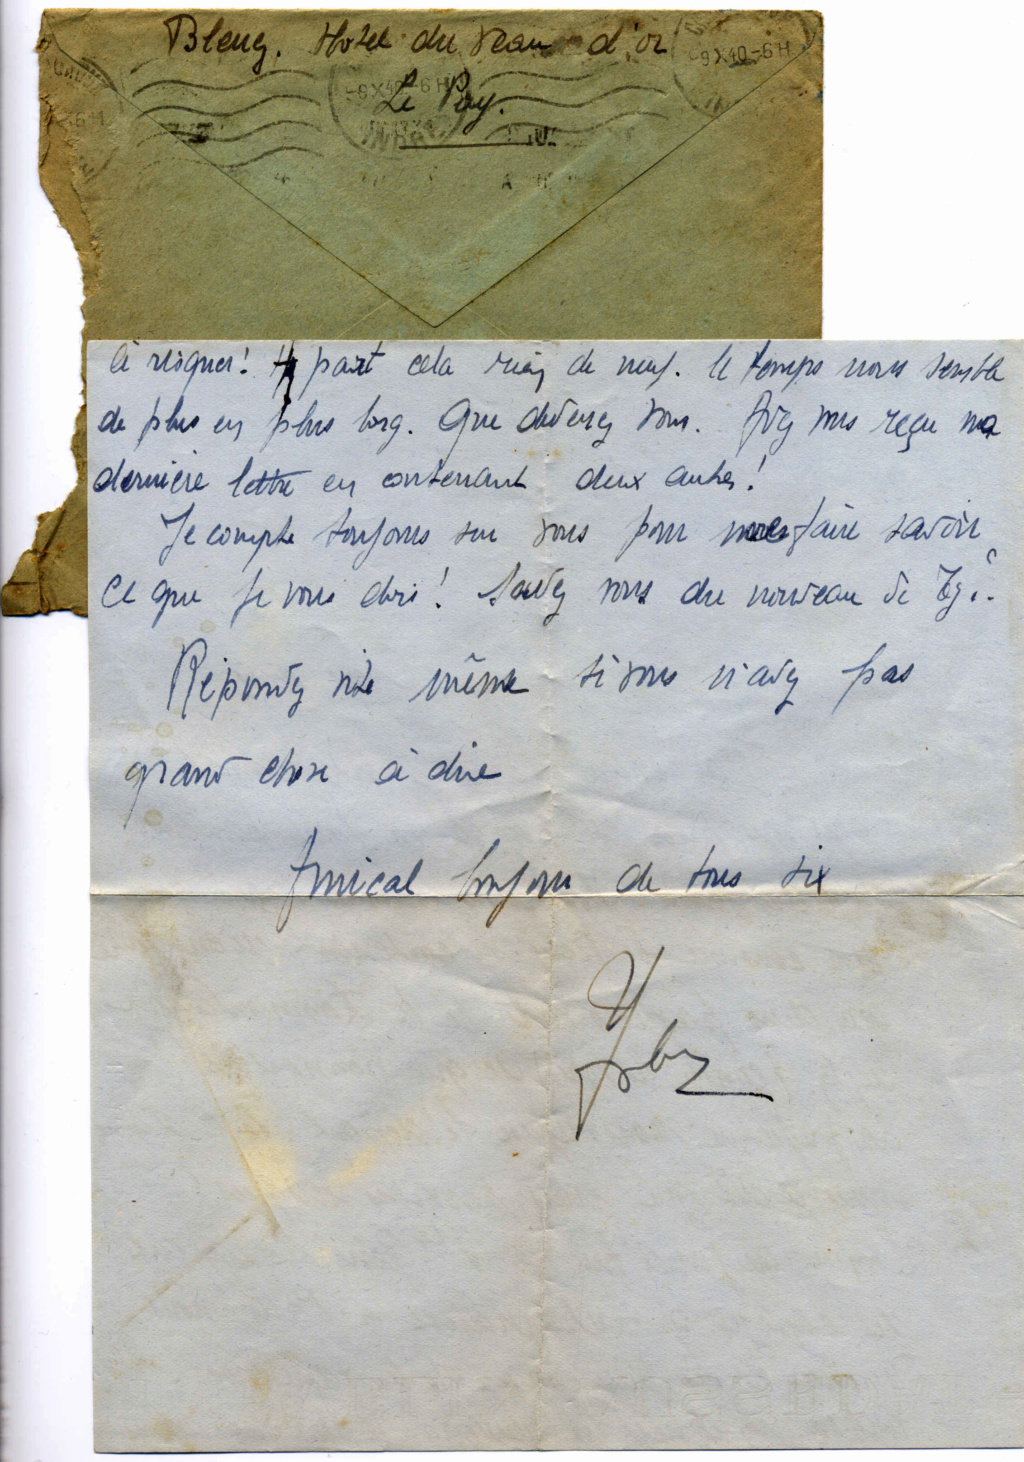 Hotel du Veau d'or
Le Puy.
-9X40-6H
-9X40-6H
à risquer! A part cela rien de neuf. le temps nous semble
de plus en plus long. Que devenez vous. Avez vous reçu ma
dernière lettre en contenant deux autres!
Je compte toujours sur vous pour me faire savoir
ce que je vous dois! Avez vous du nouveau de
Répondez vite même si vous n'avez pas
grand chose à dire
Amical bonjour de tous six